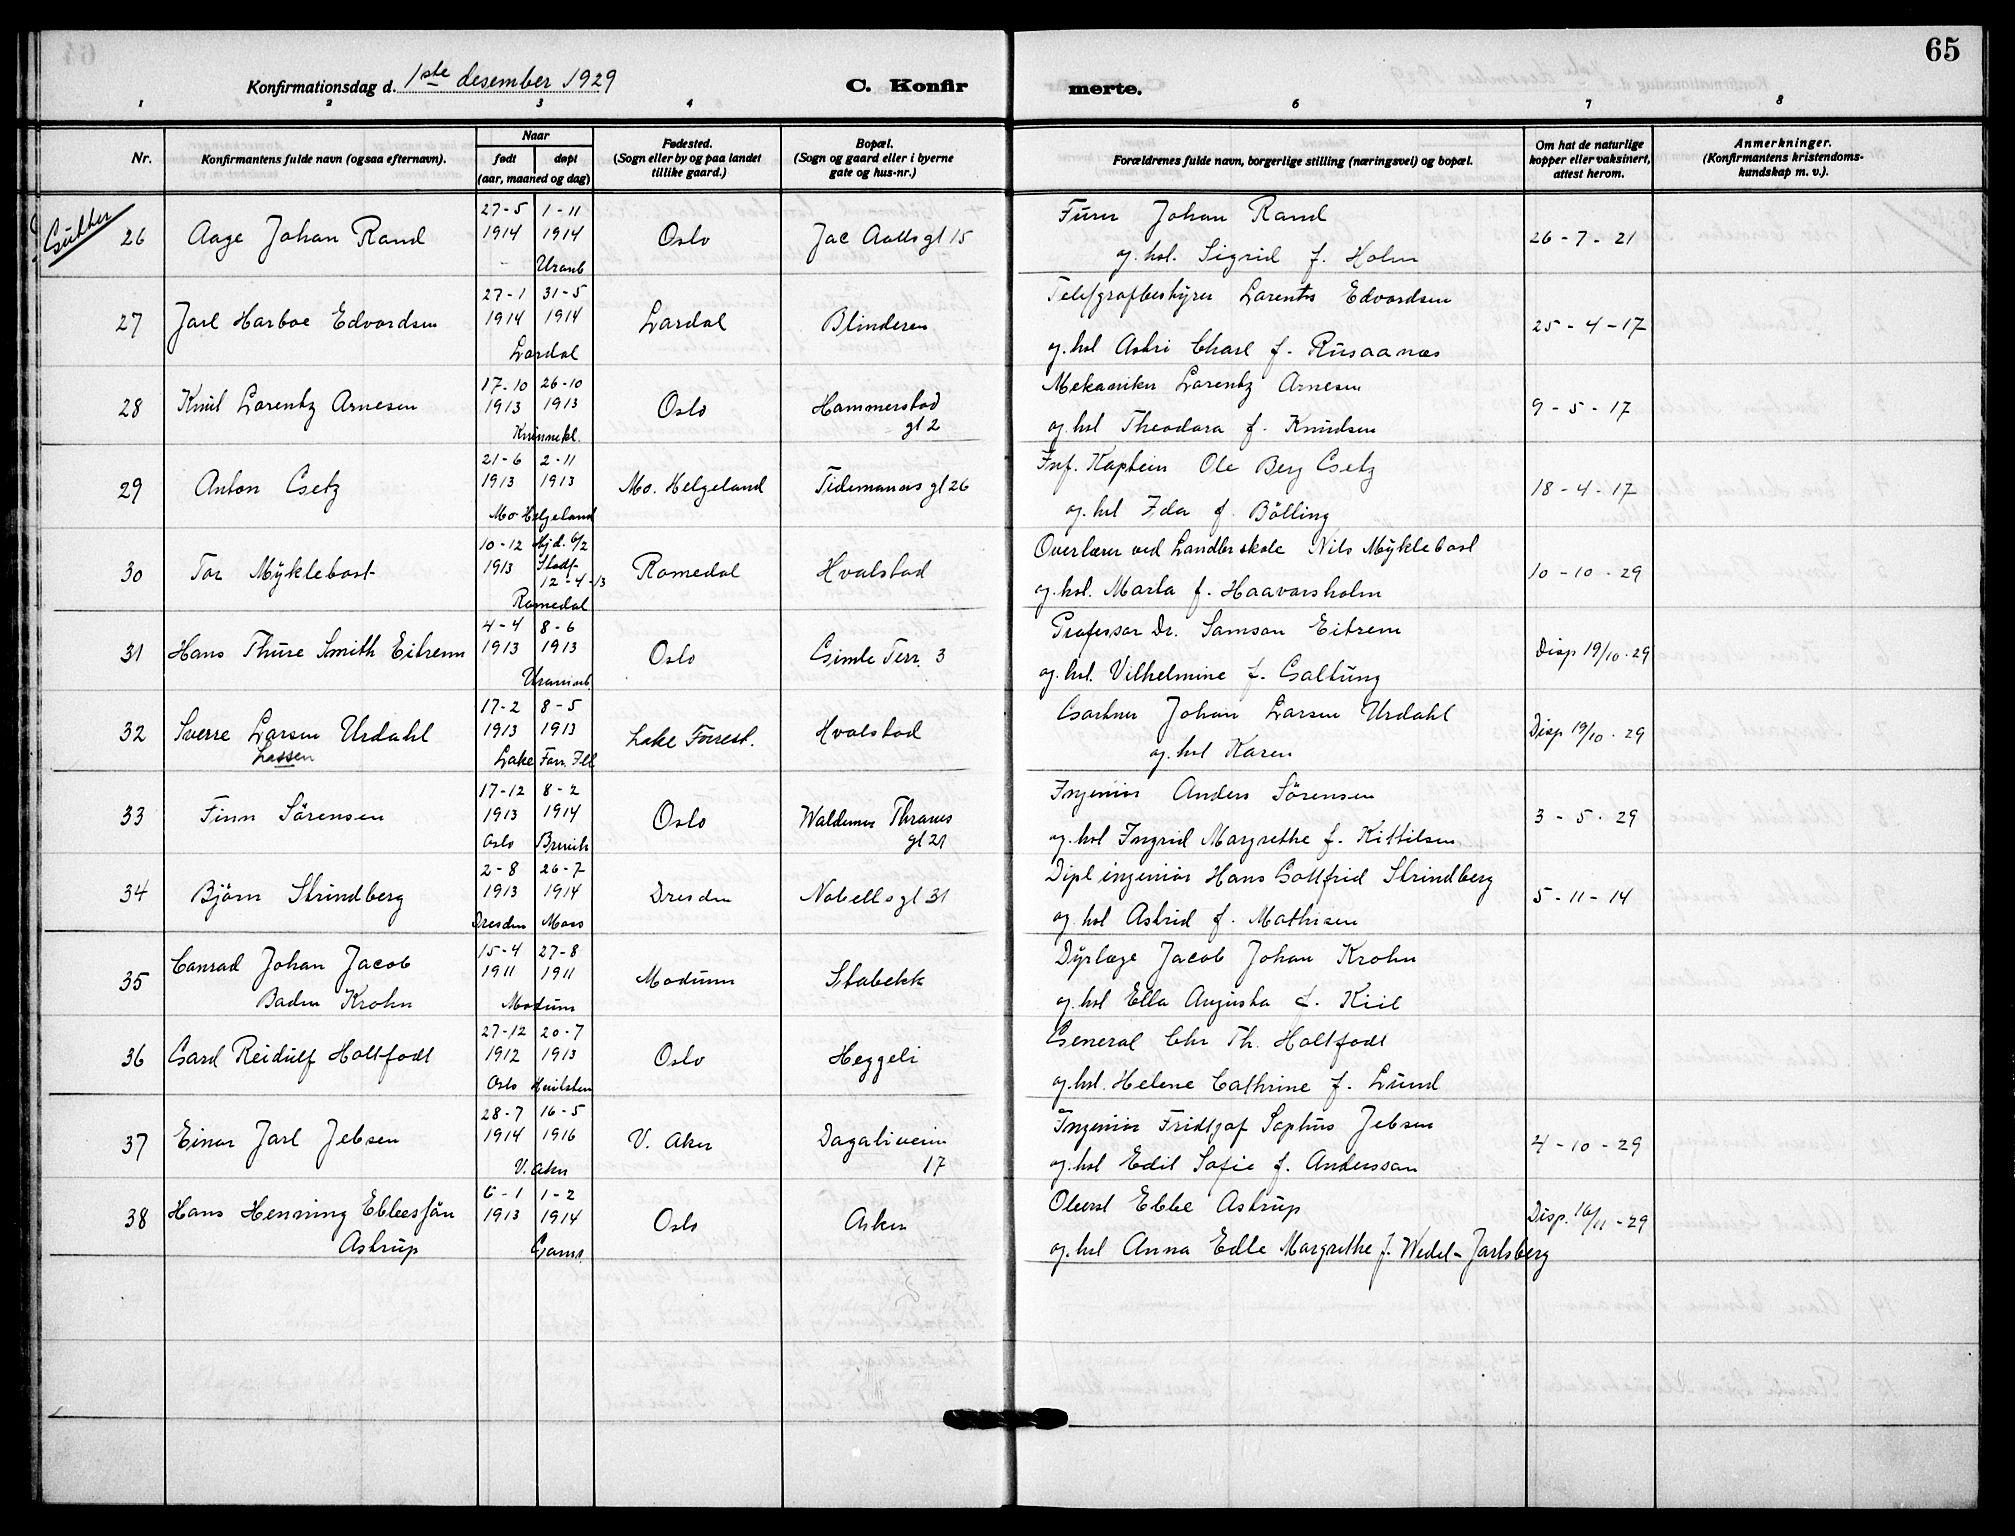 65
Konfirmationsdag d. 1ste desember 1929
C. Konfirmerte.
1 2 3 4 6 7 8
Nr.
Konfirmantens fulde navn (ogsaa efternavn).
Naar
født døpt
(aar, maaned og dag)
Fødested.
(Sogn eller by og paa landet
tillike gaard.)
Bopæl.
(Sogn og gaard eller i byerne
gate og hus-nr.)
Forældrenes fulde navn, borgerlige stilling (næringsvei) og bopæl.
Om hat de naturlige
kopper eller vaksinert,
attest herom.
Anmerkninger.
(Konfirmantens kristendoms-
kundskap m. v.).
Gutter
26 Aage Johan Rand
27-5 1-11
1914 1914
Uranb
Oslo
Jac Aallsgt 15
Furer Johan Rand
og. hul. Sigrid f. Holm
26-7-21
27 Jarl Harboe Edvardsen
27-1 31-5
1914 1914
Lardal
Lardal
Blinderen
Telefgrafbestyrer Larents Edvardsen
og. hul Astri Charl f. Rusaanæs
25-4-17
28 Knut Lorentz Arnesen
17-10 26-10
1913 1913
Kvinnekl.
Oslo
Hammerstad
gt 2
Mekaniker Lorentz Arnesen
og. hul Theodora f. Knudsen
9-5-17
29 Anton Getz
21-6 2-11
1913 1913
Mo Helgeland
Mo. Helgeland
Tidemanns gt 26
Inf. Kaptein Ole Berg Getz
og. hul Ida f. Bölling
18-4-17
30 Tor Myklebost
10-12 Hjd. 6/2
1913 Stadf.
12-4-13
Romedal
Romedal
Hvalstad
Overlærer ved Landbr skole Nils Myklebost
og. hul. Marta f. Haavarsholm
10-10-29
31 Hans Thure Smith Eitrem
4-4 8-6
1913 1913
Uranienb.
Oslo
Gimle Terr. 3
Professor Dr. Samson Eitrem
og. hul. Vilhelmine f. Galtung
Disp 19/10-29
32 Sverre Larsen Urdahl
Lassen
17-2 8-5
1913 1913
Lake Forr. Ill
Lake Forrest.
Hvalstad
Gartner Johan Larsen Urdahl
og. hul Karen
Disp 19/10-29
33 Finn Sörensen
17-12 8-2
1913 1914
Oslo
Oslo
Waldemar Thranes
gt 21
Ingeniör Anders Sörensen
og. hul Ingrid Margrethe f. Kittilsen
3-5-29
34 Björn Strindberg
2-8 26-7
1913 1914
Dresden Moss
Dresden
Nobells gt 31
Dipl ingeniör Hans Gottfrid Strindberg
og. hul Astrid f. Mathisen
5-11-14
35 Conrad Johan Jacob
Baden Krohn
15-4 27-8
1911 1911
Modum
Modum
Stabekk
Dyrlæge Jacob Johan Krohn
og. hul Ella Augusta f. Kiil
36 Gard Reidulf Holtfodt
27-12 20-7
1912 1913
Oslo
Oslo
Heggeli
General Chr Th. Holtfodt
og. hul. Helene Cathrine f. Lund
37 Einar Jarl Jebsen
28-7 16-5
1914 1916
V. Aker
V. Aker
Dagaliveien
17
Ingeniör Fridtjof Sophus Jebsen
og. hul Edil Sofie f. Andersson
4-10-29
38 Hans Henning Ebbessjön
Astrup
6-1 1-2
1913 1914
Oslo
Asker
Oberst Ebbe Astrup
og. hul Anna Edle Margrethe f. Wedel-Jarlsberg
Disp. 16/11-29